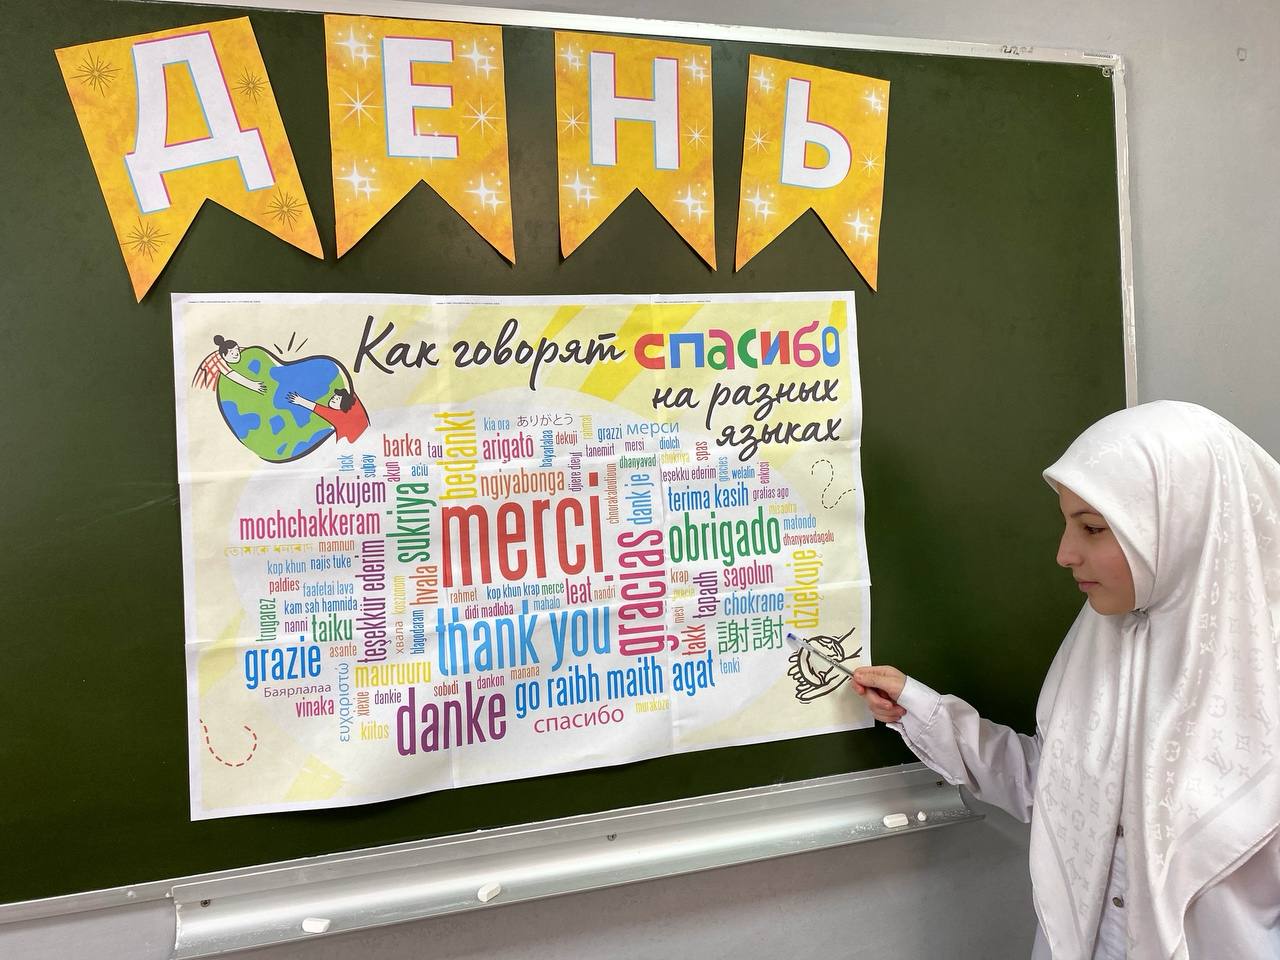 ДЕНЬ
Как говорят спасибо
на разных
языках
bedankt
kia ora
ありがとう
grazzi
мерси
barka
tau
arigatō
dekuji
tanemirt
mersi
diolch
spas
ačiu
dhanyavad
teşekku ederim
gracies
welalin
dakujem
sukriya
ngiyabonga
dank je
terima kasih
gratias ago
mochchakkeram
merci
obrigado
matondo
dhanyavadagalu
mamnun
kop khun
najis tuke
teşekkür ederim
hvala
gracias
krap
tapadh
sagolun
dziękuję
paldies
faafetai lava
rahmet
kop khun krap
merce
leat
nandri
kam sah hamnida
didi madloba
mahalo
mesi
chokrane
nanni
taiku
хвала
blagodaram
thank you
takk
謝謝
grazie
asante
mauruuru
manana
go raibh maith agat
tenki
Баярлалаа
ευχαριστώ
xiexie
dankie
sobodi
dankon
vinaka
kiitos
danke
спасибо